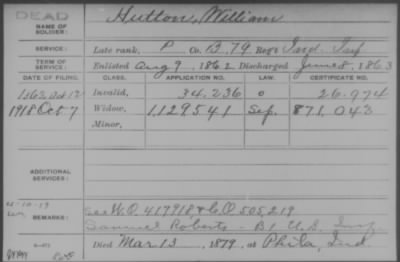 DEAD
NAME OF SOLDIER: Hutton, William
SERVICE: Late rank, P Co. B, 79 Reg't Ind. Inf
TERM OF SERVICE: Enlisted Aug 9, 1862 Discharged June 8, 1863
DATE OF FILING. CLASS. APPLICATION NO. LAW. CERTIFICATE NO.
1863 Oct 12 Invalid, 34.236 o 26.974
1918 Oct 7 Widow, 1,129541 Sep. 871.043
Minor,
ADDITIONAL SERVICES:
REMARKS: See W.O. 417918 & C.O 505219
Samuel Roberts - B1 U.S. Inf
Died Mar. 13, 1879, at Phila, Ind.